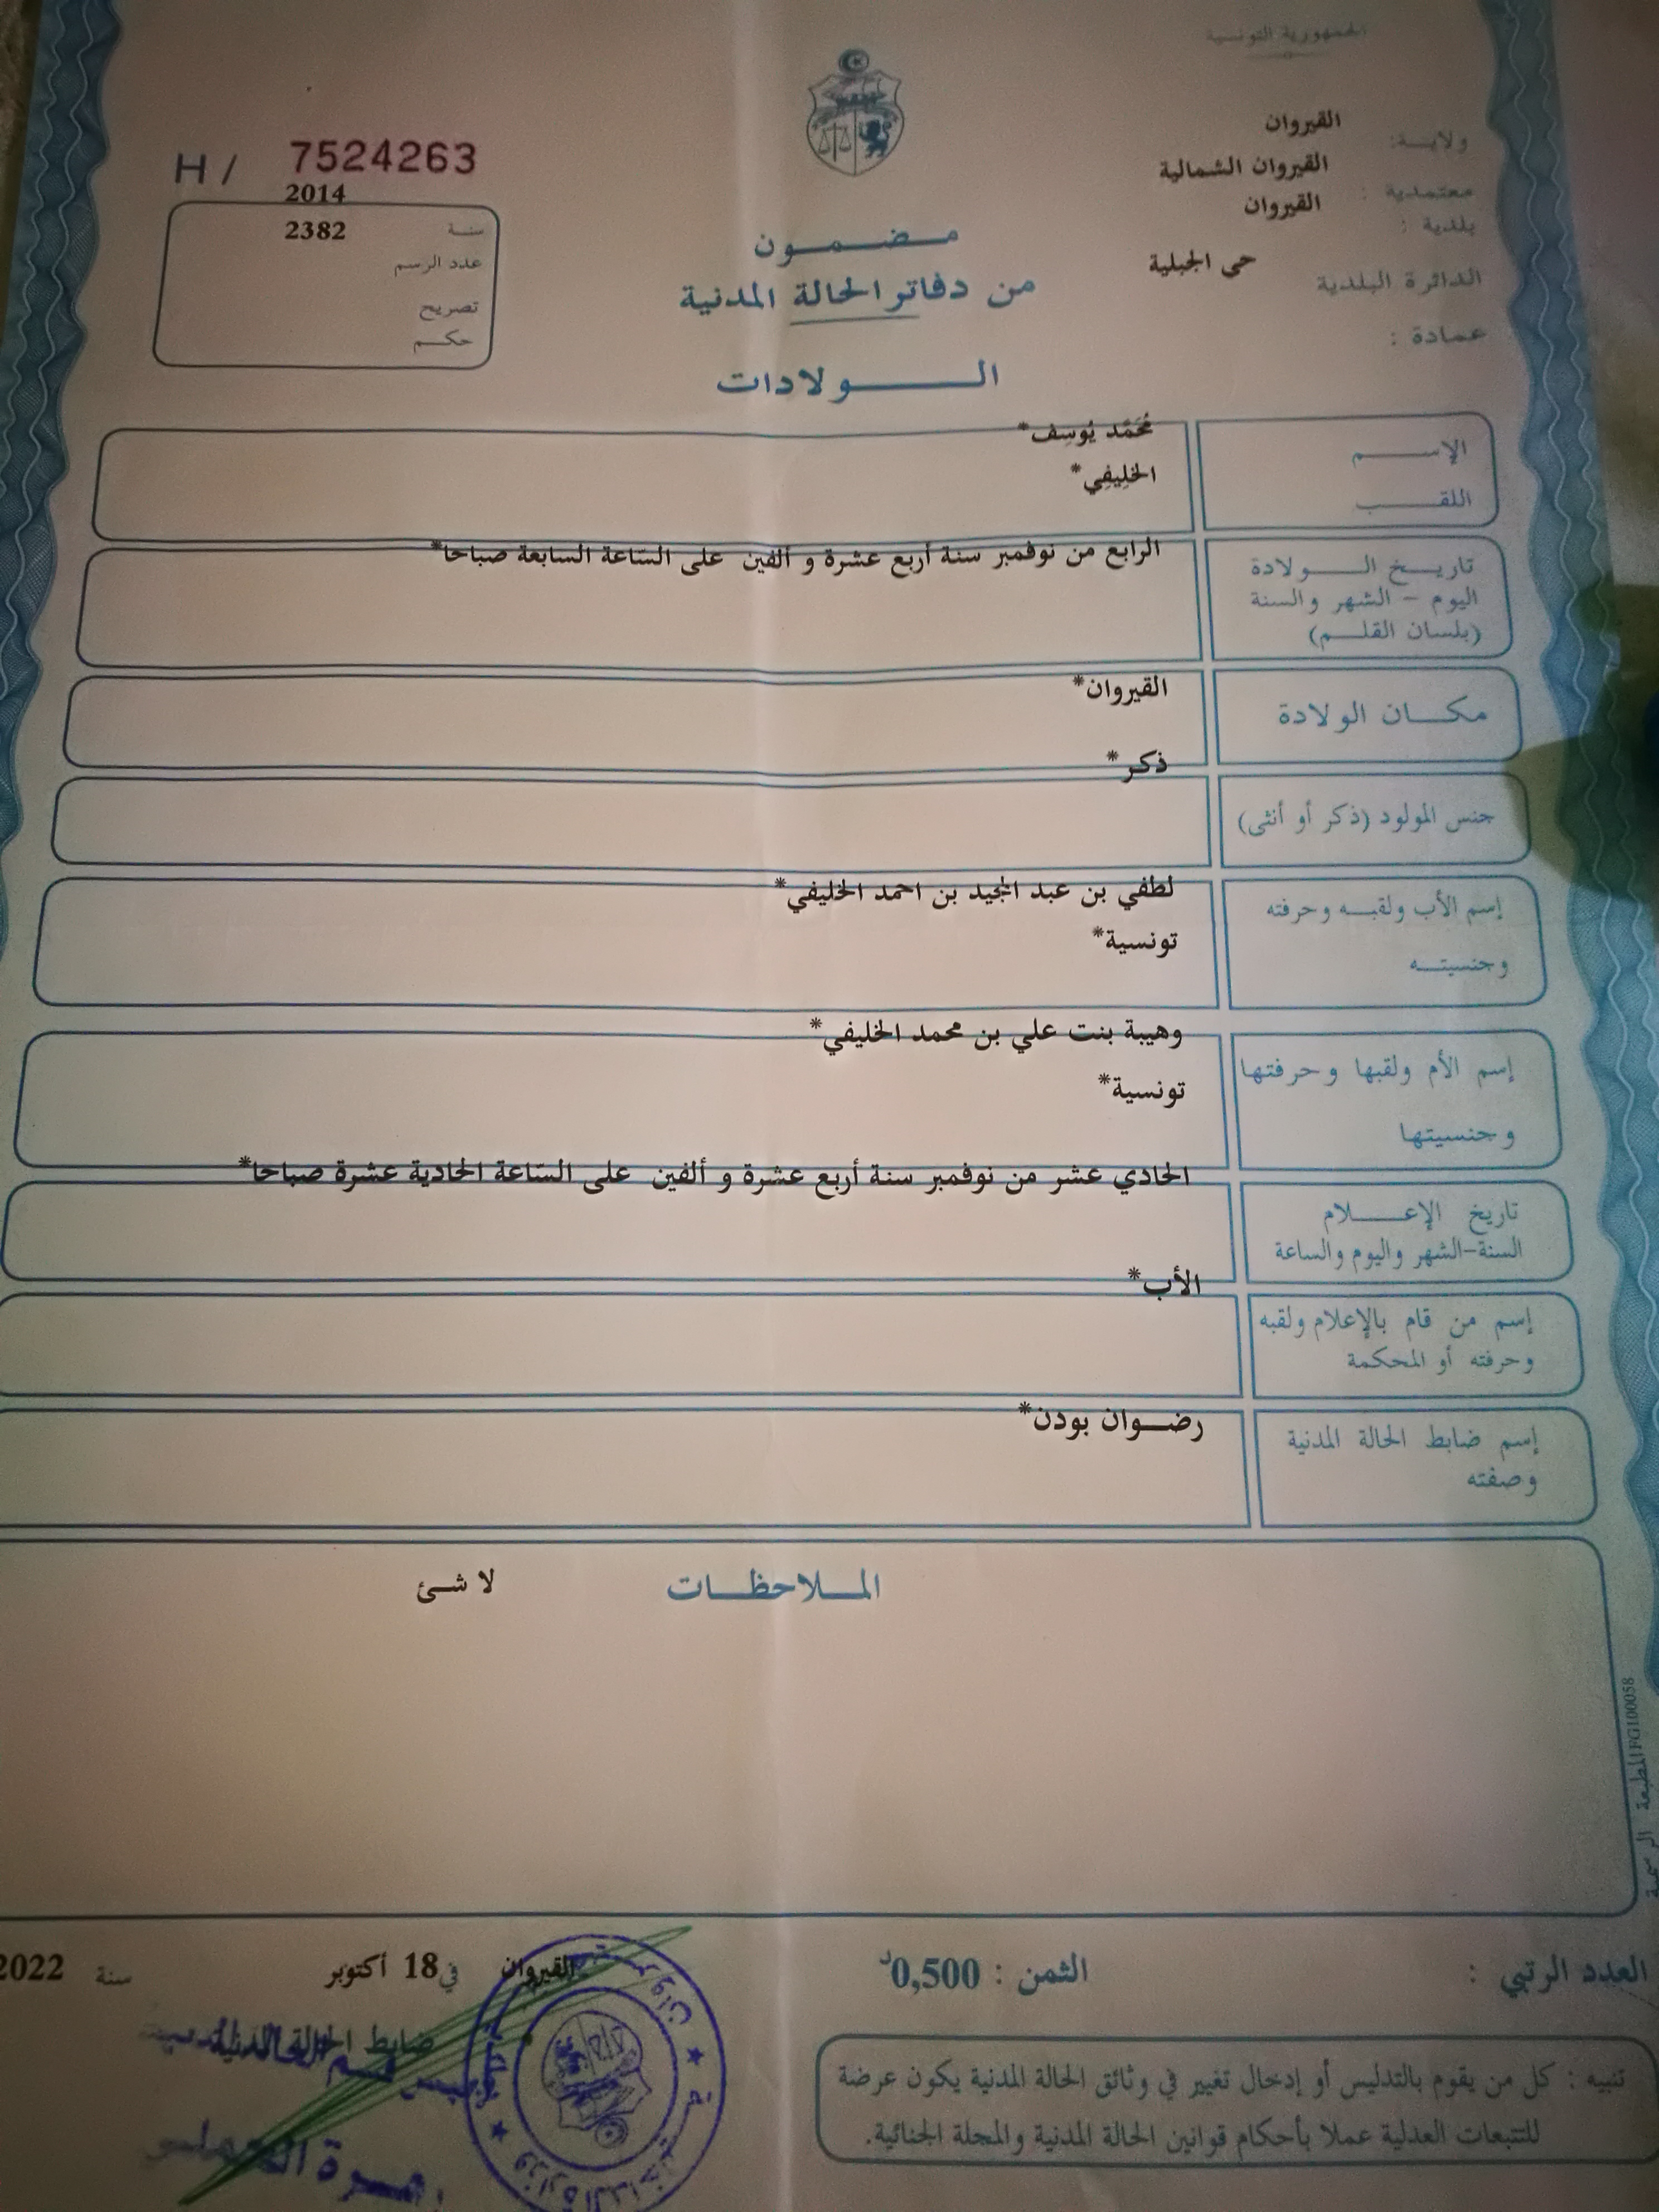 الجمهورية التونسية
ولايـة: القيروان
معتمدية : القيروان الشمالية
بلدية : القيروان
الدائرة البلدية حى الجبلية
عمادة :
H / 7524263
2014
سنة 2382
عدد الرسم
تصريح
حكم
مضمون
من دفاتر الحالة المدنية
الولادات
الإسم مُحَمَّد يُوسِف*
اللقب الخَلِيفِي*
تاريخ الولادة الرابع من نوفمبر سنة أربع عشرة و ألفين على السّاعة السابعة صباحا*
اليوم – الشهر والسنة
(بلسان القلم)
مكان الولادة القيروان*
ذكر*
جنس المولود (ذكر أو أنثى)
إسم الأب ولقبه وحرفته لطفي بن عبد المجيد بن احمد الخليفي*
وجنسيته تونسية*
وهيبة بنت علي بن محمد الخليفي*
إسم الأم ولقبها وحرفتها تونسية*
وجنسيتها
الحادي عشر من نوفمبر سنة أربع عشرة و ألفين على السّاعة الحادية عشرة صباحا*
تاريخ الإعلام
السنة-الشهر واليوم والساعة
الأب*
إسم من قام بالإعلام ولقبه
وحرفته أو المحكمة
إسم ضابط الحالة المدنية رضوان بودن*
وصفته
الملاحظات لا شئ
المطبعة الرسمية FG100058
العدد الرتبي :
الثمن : 0,500د
القيروان في 18 أكتوبر سنة 2022
ضابط الحالة المدنية
تنبيه : كل من يقوم بالتدليس أو إدخال تغيير في وثائق الحالة المدنية يكون عرضة
للتتبعات العدلية عملا بأحكام قوانين الحالة المدنية والمجلة الجنائية.